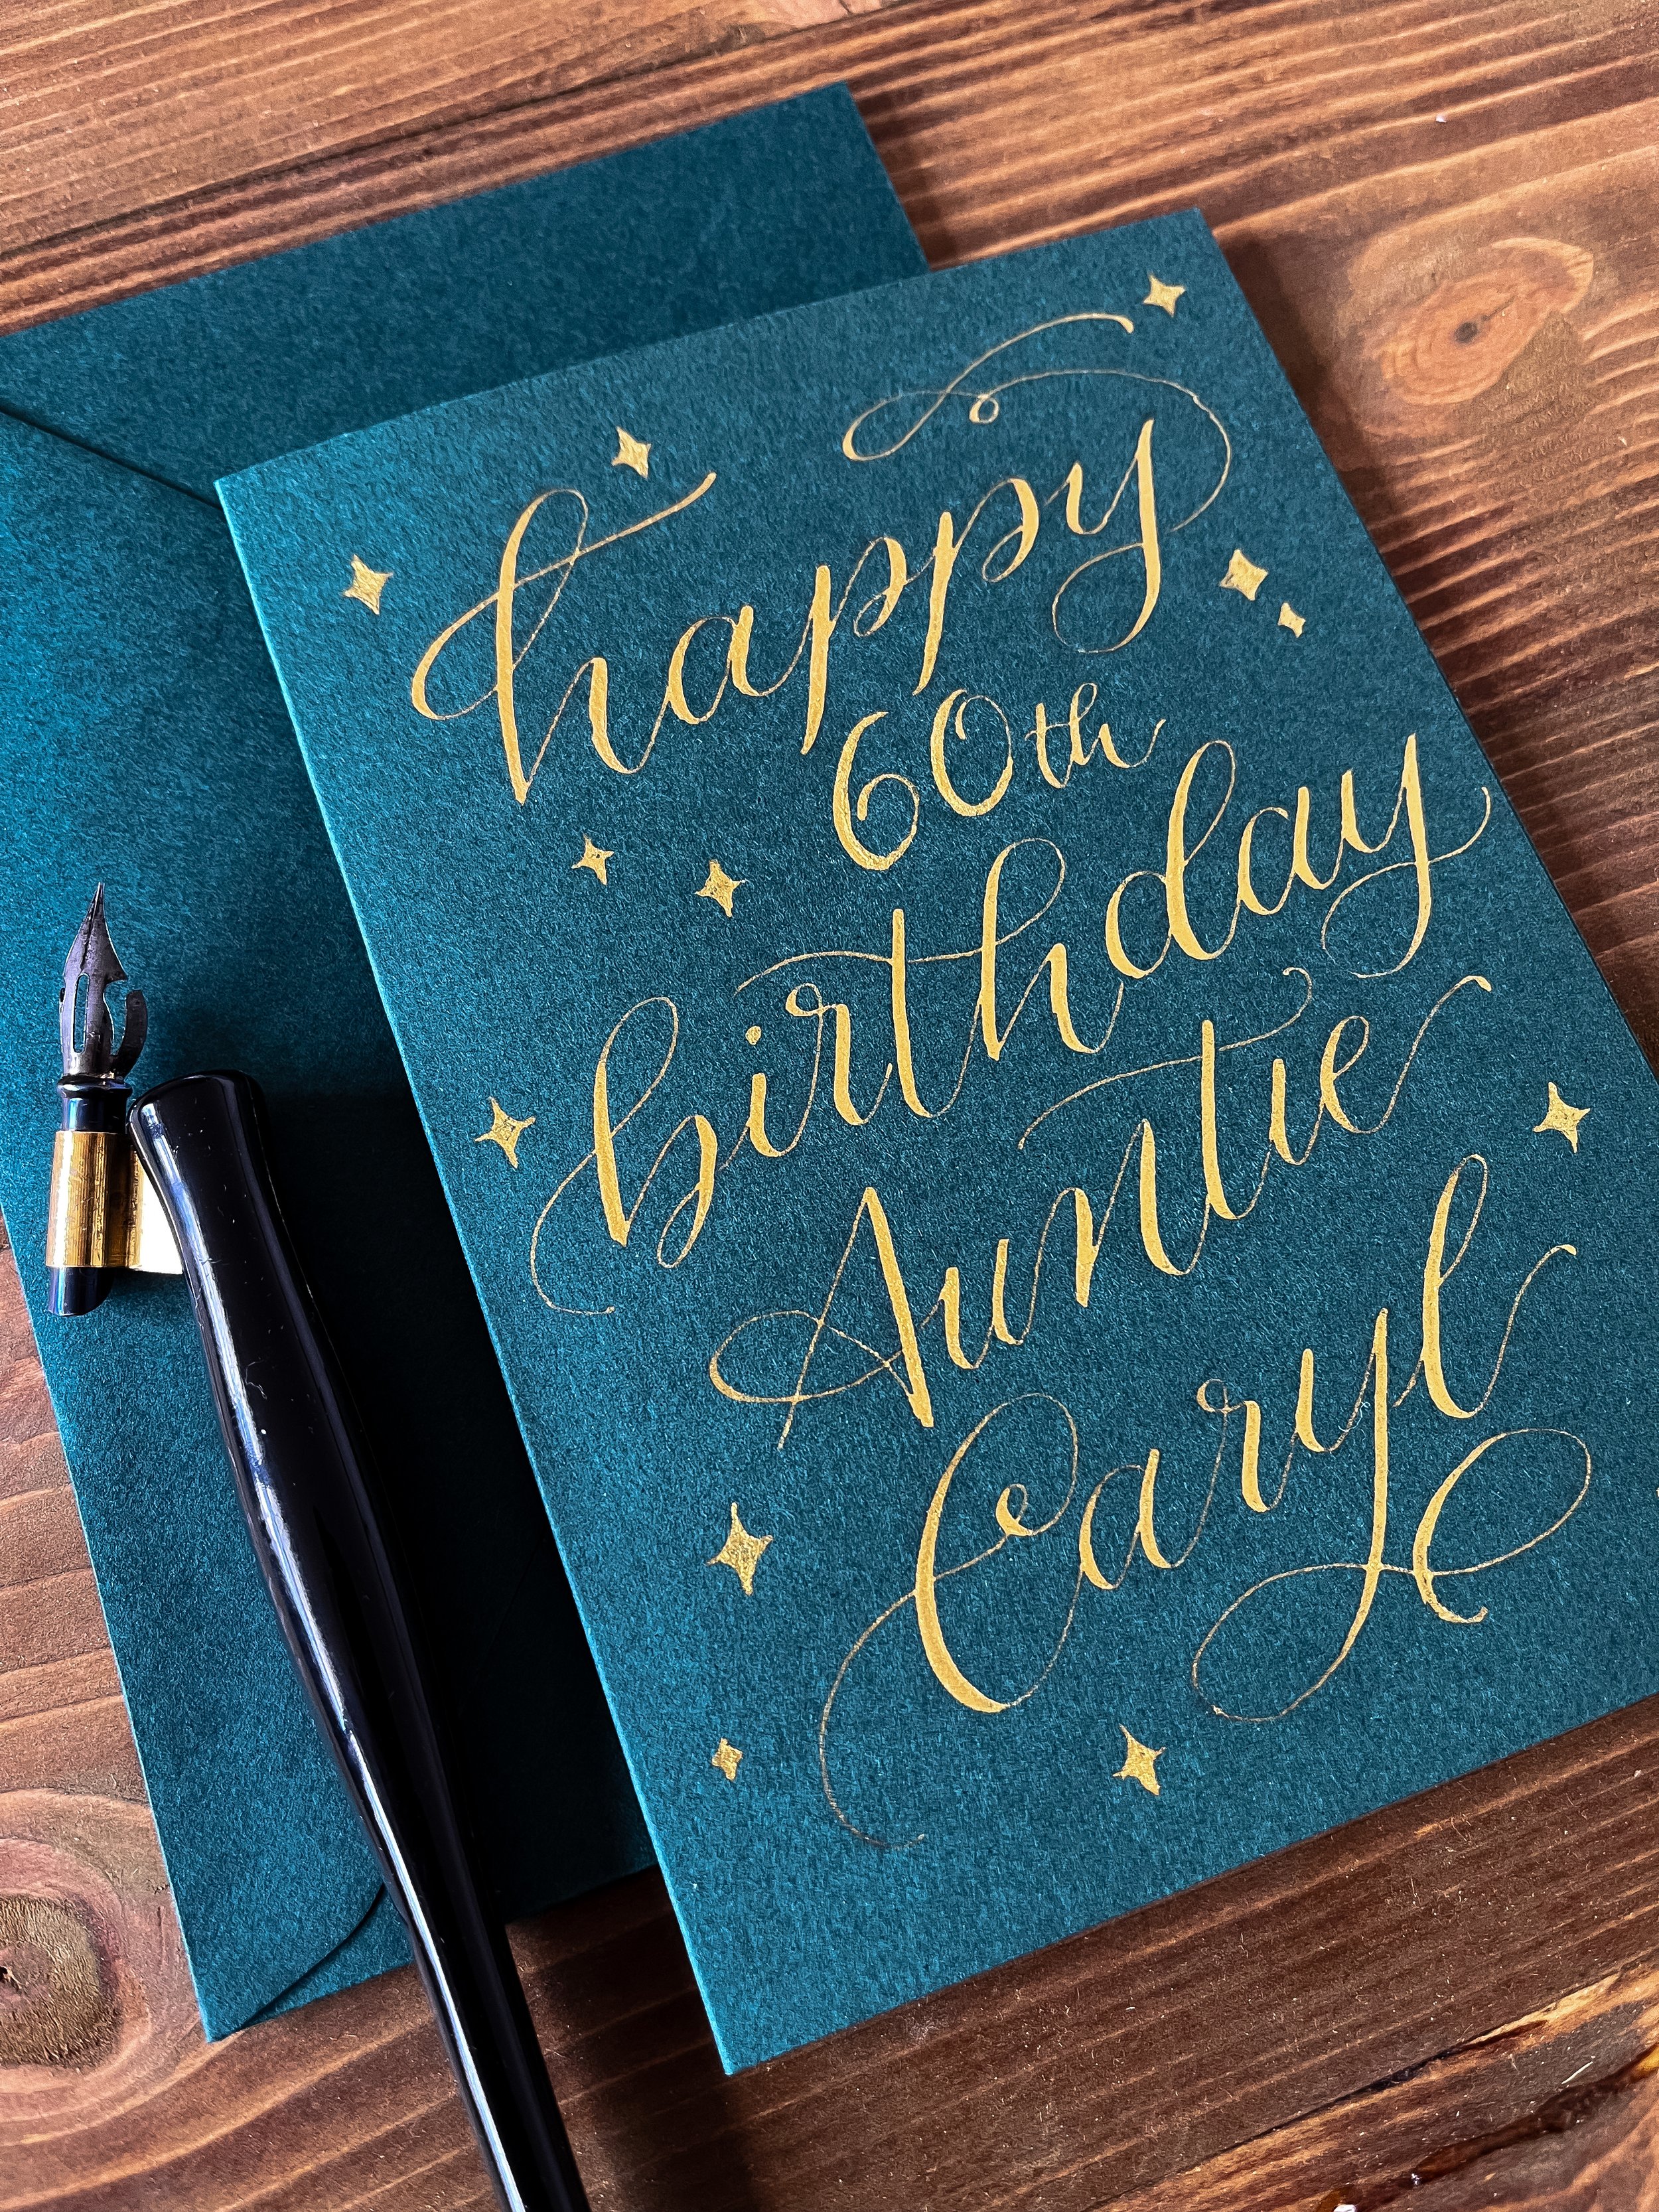 happy
60th
birthday
Auntie
Caryl